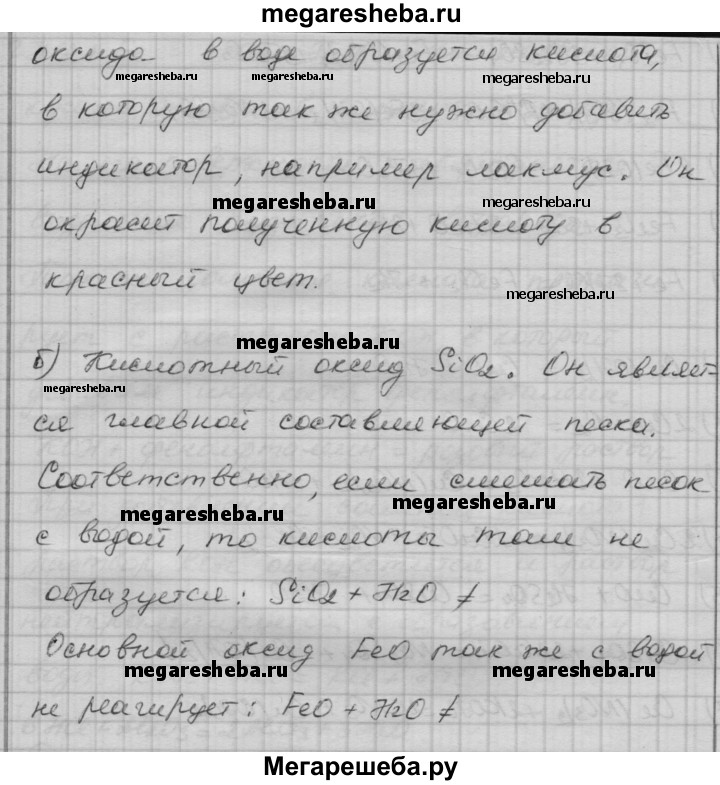 megaresheba.ru
оксидо- в воде образуется кислота,
megaresheba.ru megaresheba.ru megaresheba.ru
в которую так же нужно добавить
индикатор, например лакмус. Он
megaresheba.ru megaresheba.ru
окрасит полученную кислоту в
красный цвет.
megaresheba.ru
megaresheba.ru
б) Кислотный оксид SiO2. Он являет-
megaresheba.ru
ся главной составляющей песка.
Соответственно, если смешать песок
megaresheba.ru megaresheba.ru
с водой, то кислоты там не
образуется: SiO2 + H2O ≠
Основной оксид FeO так же с водой
megaresheba.ru megaresheba.ru
не реагирует: FeO + H2O ≠
Мегарешеба.ру